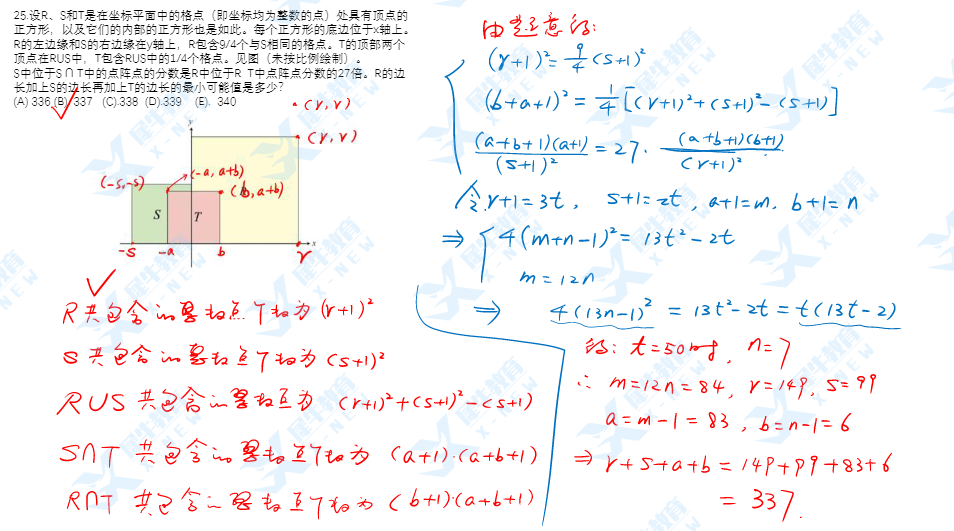 25.设R、S和T是在坐标平面中的格点（即坐标均为整数的点）处具有顶点的
正方形，以及它们的内部的正方形也是如此。每个正方形的底边位于x轴上。
R的左边缘和S的右边缘在y轴上，R包含9/4个与S相同的格点。T的顶部两个
顶点在RUS中，T包含RUS中的1/4个格点。见图（未按比例绘制）。
S中位于S∩T中的点阵点的分数是R中位于R T中点阵点分数的27倍。R的边
长加上S的边长再加上T的边长的最小可能值是多少?
(A) 336 (B) 337 (C).338 (D).339 (E). 340
(r, r)
y
(r, r)
(-s, -s)
(-a, a+b)
(b, a+b)
S
T
x
-s
-a
b
r
R共包含的整数点个数为(r+1)²
S 共包含的整数点个数为 (s+1)²
RUS 共包含的整数点为 (r+1)²+(s+1)²-(s+1)
S∩T 共包含的整数点个数为 (a+1)·(a+b+1)
R∩T 共包含的整数点个数为 (b+1)·(a+b+1)
由题意得:
(r+1)² = 9/4 (s+1)²
(b+a+1)² = 1/4 [(r+1)²+(s+1)²-(s+1)]
(a+b+1)(a+1)/(s+1)² = 27· (a+b+1)(b+1)/(r+1)²
令 r+1=3t, s+1=2t, a+1=m, b+1=n
⇒ { 4(m+n-1)² = 13t²-2t
m=12n
⇒ 4(13n-1)² = 13t²-2t = t(13t-2)
得: t=50时, n=7
∴ m=12n=84, r=149, s=99
a=m-1=83, b=n-1=6
⇒ r+s+a+b=149+99+83+6
= 337.